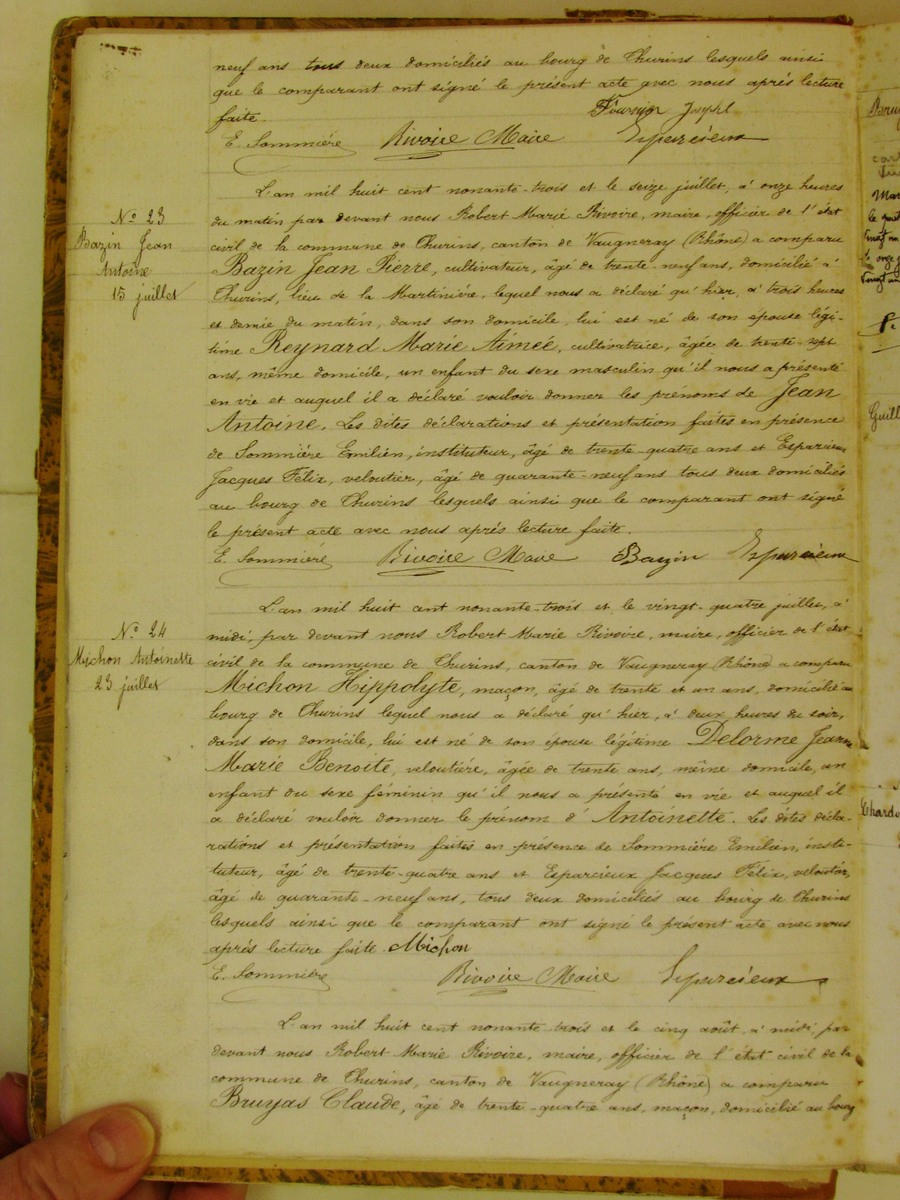 neuf ans tous deux domiciliés au bourg de Thurins lesquels ainsi
que le comparant ont signé le présent acte avec nous après lecture
faite. Fournier Joseph
E. Sommière Rivoire Maire Esparcieux
L'an mil huit cent nonante-trois et le seize juillet, à onze heures
N° 23
du matin par devant nous Robert Marie Rivoire, maire, officier de l'état
Bazin Jean
civil de la commune de Thurins, canton de Vaugneray (Rhône) a comparu
Antoine
Bazin Jean Pierre, cultivateur, âgé de trente-neuf ans, domicilié à
15 juillet
Thurins, lieu de la Martinière, lequel nous a déclaré qu'hier, à trois heures
et demie du matin, dans son domicile, lui est né de son epouse légi-
time Reynard Marie Aimée, cultivatrice, âgée de trente-sept
ans, même domicile, un enfant du sexe masculin qu'il nous a présenté
en vie et auquel il a déclaré vouloir donner les prénoms de Jean
Antoine. Les dites déclarations et présentation faites en présence
de Sommière Emilien, instituteur, âgé de trente-quatre ans et Esparcieux
Jacques Félix, veloutier, âgé de quarante-neuf ans tous deux domiciliés
au bourg de Thurins lesquels ainsi que le comparant ont signé
le présent acte avec nous après lecture faite.
E. Sommière Rivoire Maire Bazin Esparcieux
L'an mil huit cent nonante-trois et le vingt-quatre juillet, à
N° 24
midi, par devant nous Robert Marie Rivoire, maire, officier de l'état
Michon Antoinette
civil de la commune de Thurins, canton de Vaugneray (Rhône) a comparu
23 juillet
Michon Hippolyte, maçon, âgé de trente et un ans, domicilié au
bourg de Thurins lequel nous a déclaré qu'hier, à deux heures du soir,
dans son domicile, lui est né de son épouse légitime Delorme Jeanne
Marie Benoite, veloutière, âgée de trente ans, même domicile, un
enfant du sexe féminin qu'il nous a présenté en vie et auquel il
a déclaré vouloir donner le prénom d'Antoinette. Les dites décla-
rations et présentation faites en présence de Sommière Emilien, insti-
tuteur, âgé de trente-quatre ans et Esparcieux Jacques Félix, veloutier,
âgé de quarante-neuf ans, tous deux domiciliés au bourg de Thurins
lesquels ainsi que le comparant ont signé le présent acte avec nous
après lecture faite. Michon
E. Sommière Rivoire Maire Esparcieux
L'an mil huit cent nonante-trois et le cinq août, à midi, par
devant nous Robert Marie Rivoire, maire, officier de l'état civil de la
commune de Thurins, canton de Vaugneray (Rhône) a comparu
Bruyas Claude, âgé de trente-quatre ans, maçon, domicilié au bourg